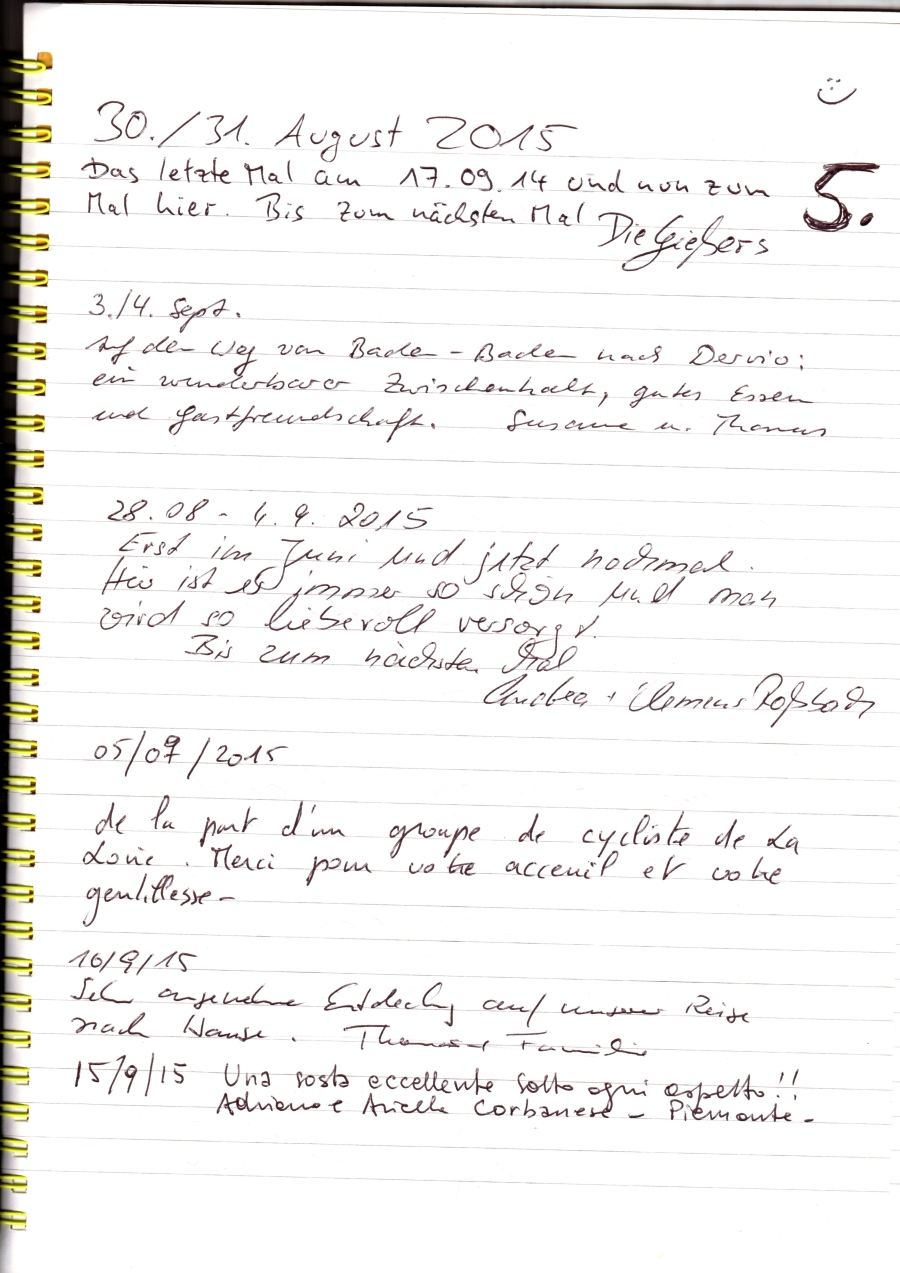 30./31. August 2015
Das letzte Mal am 17.09.14 und nun zum 5.
Mal hier. Bis zum nächsten Mal
Die Gießers
3./4. Sept.
Auf dem Weg von Baden-Baden nach Dervio:
ein wunderbarer Zwischenhalt, gutes Essen
und Gastfreundschaft. Susanne u. Thomas
28.08 - 4.9. 2015
Erst im Juni und jetzt nochmal.
Hier ist es immer so schön und man
wird so liebevoll versorgt.
Bis zum nächsten Mal
Andrea + Clemens Roßbach
05/09/2015
de la part d'un groupe de cycliste de La
Loire. Merci pour votre acceuil et votre
gentillesse-
10/9/15
Sehr angenehme Entdeckung auf unserer Reise
nach Hause. Thomas + Familie
15/9/15 Una sosta eccellente sotto ogni aspetto!!
Adriano e Ariella Corbanese - Piemonte-